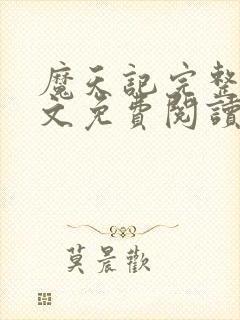 魔天記完整
文免費閱讀
莫晨歡